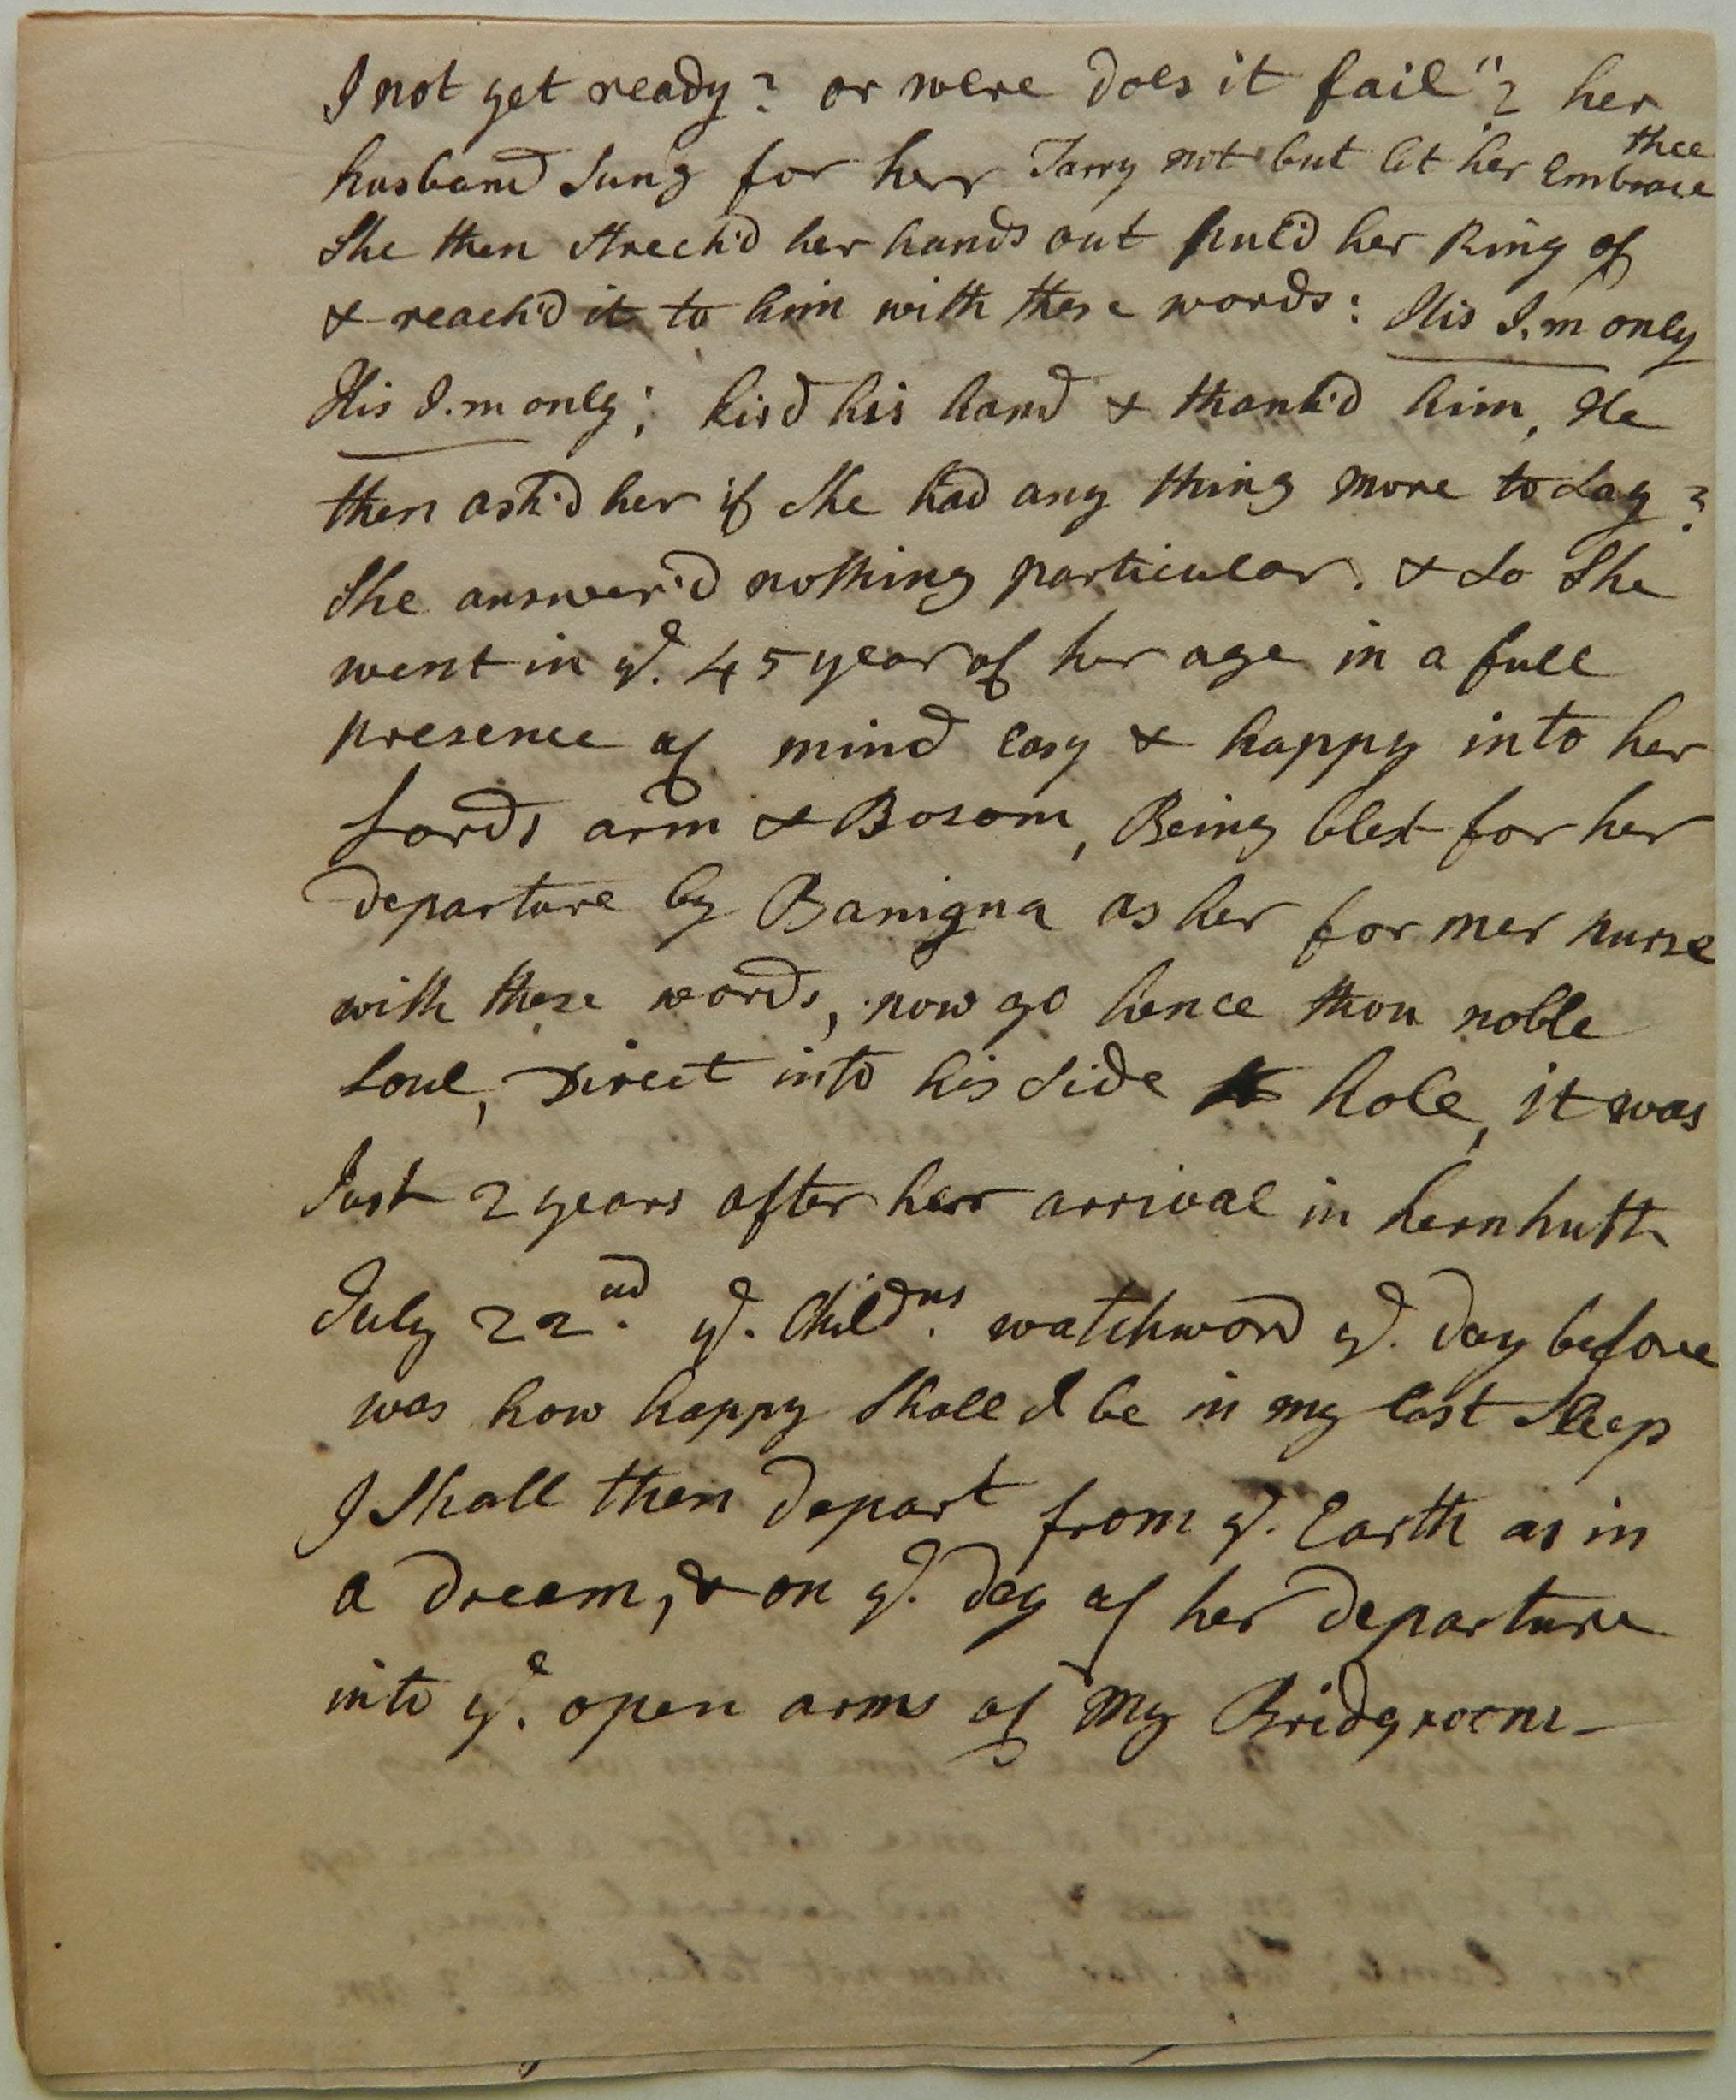 I not yet ready? or were does it fail"? her
husband Sung for her Tarry not but let her Embrace thee
She then Strech'd her hands out pul'd her Ring of
& reach'd it to him with these words: His I.m only
His I.m only; kis'd his hand & thank'd him, He
then ask'd her if She had any thing more to Say?
She answer'd nothing particular. & So She
went in ye. 45 year of her age in a full
presence of mind easy & happy into her
Lords arm & Bosom, Being blest for her
departure by Banigna as her former nurse
with these words, now go hence thou noble
Soul, Direct into his Side hole, it was
Just 2 years after her arrival in hernhutt
July 22nd. ye. Childns. watchword ye. day before
was how happy Shall I be in my last Sleep
I Shall then depart from ye. Earth as in
a dream, & on ye. day of her departure
into ye. open arms of my Bridgroom—